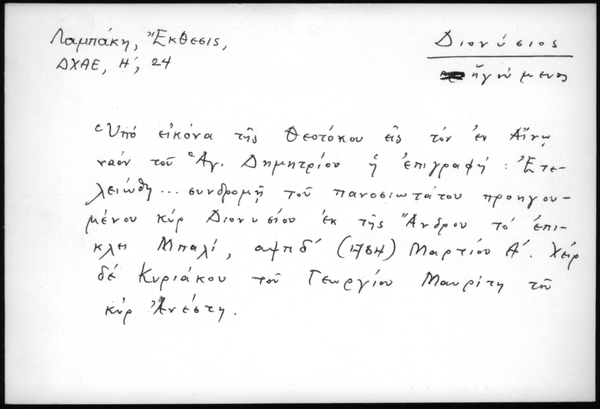 Λαμπάκη, Ἔκθεσις,
ΔΧΑΕ, Η΄, 24
Διονύσιος
ἡγούμενος
Ὑπό εἰκόνα τῆς Θεοτόκου εἰς τόν ἐν Αἴνῳ
ναόν τοῦ Ἁγ. Δημητρίου ἡ ἐπιγραφή : Ἐτε-
λειώθη... συνδρομῇ τοῦ πανοσιωτάτου προηγου-
μένου κύρ Διονυσίου ἐκ τῆς Ἄνδρου τό ἐπι-
κλει Μπαλί, αψπδ΄ (1784) Μαρτίου Α΄. Χείρ
δέ Κυριάκου τοῦ Γεωργίου Μαυρίτη τοῦ
κύρ Ἀνέστη.